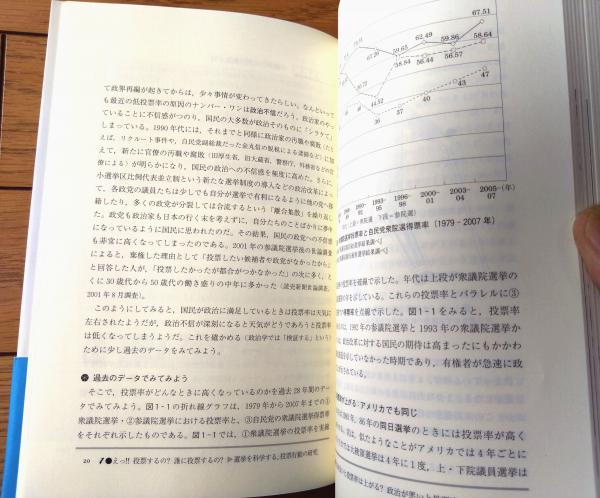 て政界再編が起きてからは，少々事情が変わってきたらしい。なんといって
も最近の低投票率の原因のナンバー・ワンは政治不信だろう。政治家のやっ
ていることに不信感がつのり，国民の大多数が政治そのものに「シラケて」
しまっている。1990年代には，それまでと同様に政治家の汚職や腐敗（たと
えば，リクルート事件や，自民党副総裁だった金丸信の脱税による逮捕など）に加
えて，新たに官僚の汚職や腐敗（旧厚生省，旧大蔵省，警察庁，外務省などの官
僚による）が明らかになり，国民の政治への不信感を極度に高めた。さらに，
小選挙区比例代表並立制という新たな選挙制度の導入などの政治改革によっ
て，各政党の議員たちは少しでも自分が選挙で有利になるように他の党へ移
籍したり，多くの政党が分裂しては合流するという「離合集散」を繰り返し
た。政党も政治家も日本の行く末を考えずに，自分たちのことばかりに夢中
になっているように国民に思われたのだ。その結果，国民の政党への不信感
も非常に高くなってしまったのである。2001年の参議院選挙後の世論調査
によると，棄権した理由として「投票したい候補者や政党がなかったから」
と回答した人が，「投票したかったが都合がつかなかった」の次に多く，と
くに30歳代から50歳代の働き盛りの中年に多かった（読売新聞世論調査，
2001年8月調査）。
このようにしてみると，国民が政治に満足しているときは投票率は天気に
左右されたようだが，政治不信が深刻になると天気がどうであろうと投票率
は低くなってしまうようだ。これを確かめる（政治学では「検証する」という）
ために少し過去のデータをみてみよう。
過去のデータでみてみよう
そこで，投票率がどんなときに高くなっているのかを過去28年間のデー
タでみてみよう。図1-1の折れ線グラフは，1979年から2007年までの①
衆議院選挙・②参議院選挙における投票率と，③自民党の衆議院選挙得票率
をそれぞれ示したものである。図1-1では，①衆議院選挙の投票率を実線
20 1●えっ!! 投票するの？ 誰に投票するの？ ▶選挙を科学する：投票行動の研究
67.51
62.49
59.65
59.86
58.64
67.26
58.84
56.44
56.57
44.52
36
37
40
43
47
1993-95
1996-98
2000-01
2003-04
2005-07
(年)
上段＝衆院選 下段＝参院選
投票率と自民党衆院選得票率（1979－2007年）
投票率を破線で示した。年代は上段が衆議院選挙の
の年を示している。これらの投票率とパラレルに③
得票率を点線で示した。図1-1をみると，投票率
のは，1992年の参議院選挙と1993年の衆議院選挙か
は，政治改革に対する国民の期待は高まったにもかかわ
していなかった時期であり，有権者が急速に政
されている。
上がる：アメリカでも同じ
1980年，86年の同日選挙のときには投票率が高く
は，似たようなことがアメリカでは4年ごとに
大統領選挙は4年に1度，上・下院議員選挙は
投票率は上がる？ 政治が悪いと